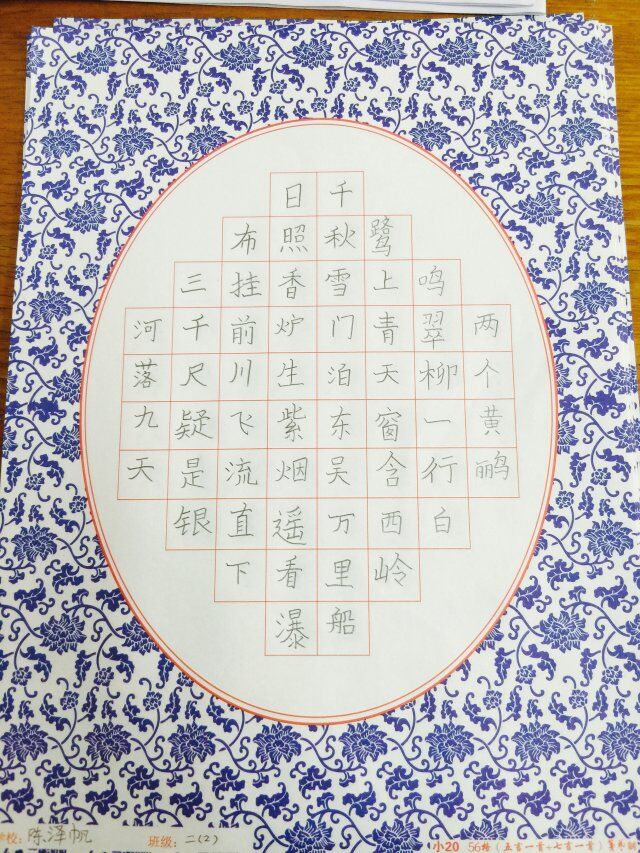 两个黄鹂
鸣翠柳一行白
鹭上青天窗含西岭
千秋雪门泊东吴万里船
日照香炉生紫烟遥看瀑
布挂前川飞流直下
三千尺疑是银
河落九天
校：陈泽帆 班级：二(2) 小20 56格（五言一首+七言一首）